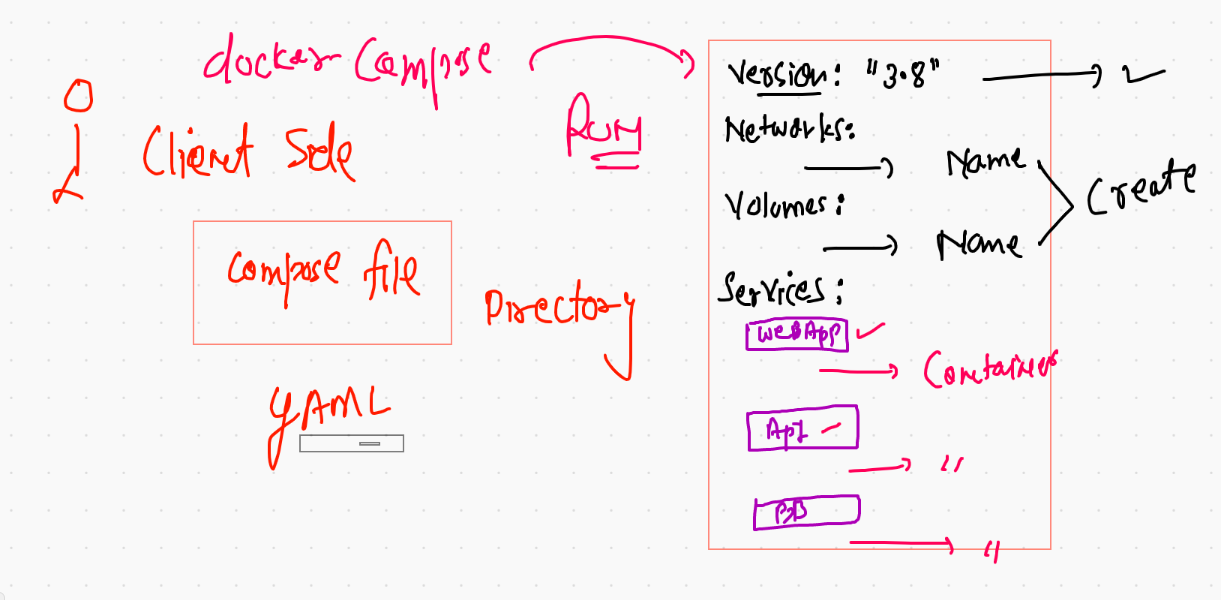 docker Compose
RUN
Client Side
Compose file
Directory
YAML
Version: "3.8"
Networks:
Name
Volumes:
Name
Create
Services:
WebApp
Container
API
"
DB
"